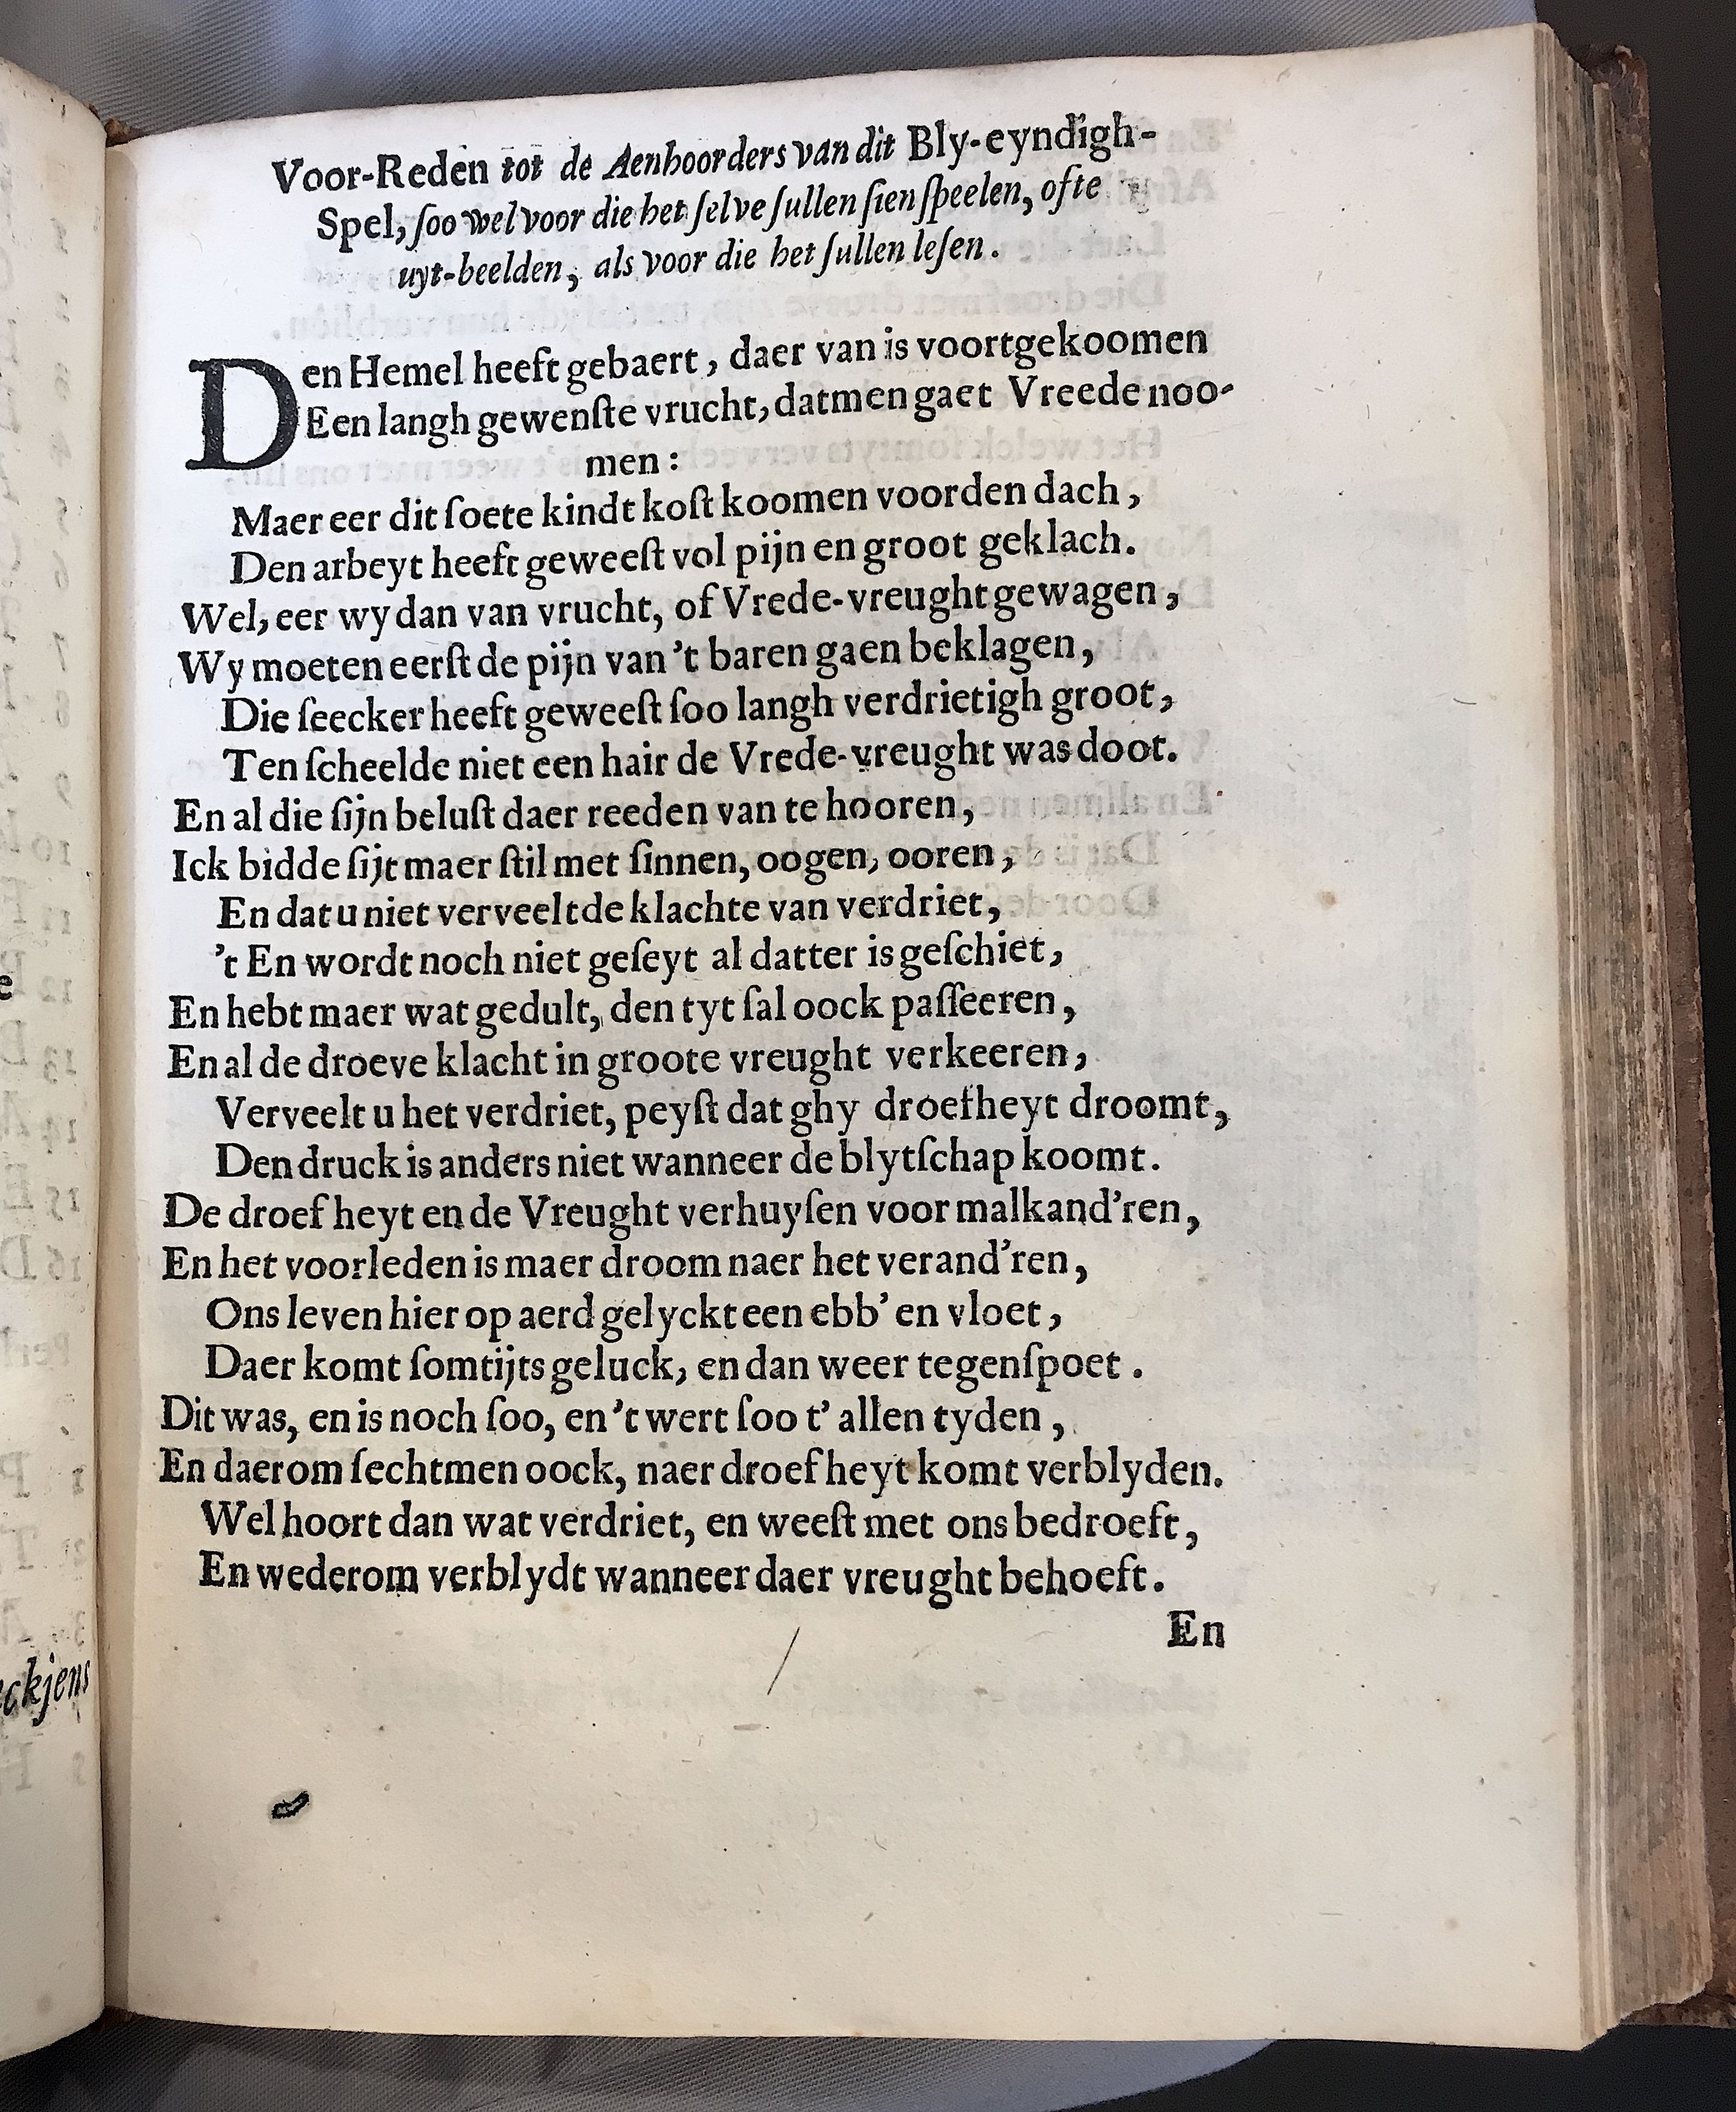 Voor-Reden tot de Aenhoorders van dit Bly-eyndigh-
Spel, ſoo wel voor die het ſelve ſullen ſien ſpeelen, ofte
uyt-beelden, als voor die het ſullen leſen.
Den Hemel heeft gebaert, daer van is voortgekoomen
Een langh gewenſte vrucht, datmen gaet Vreede noo-
men:
Maer eer dit ſoete kindt koſt koomen voorden dach,
Den arbeyt heeft geweeſt vol pijn en groot geklach.
Wel, eer wy dan van vrucht, of Vrede-vreught gewagen,
Wy moeten eerſt de pijn van 't baren gaen beklagen,
Die ſeecker heeft geweeſt ſoo langh verdrietigh groot,
Ten ſcheelde niet een hair de Vrede-vreught was doot.
En al die ſijn beluſt daer reeden van te hooren,
Ick bidde ſijt maer ſtil met ſinnen, oogen, ooren,
En dat u niet verveelt de klachte van verdriet,
't En wordt noch niet geſeyt al datter is geſchiet,
En hebt maer wat gedult, den tyt ſal oock paſſeeren,
En al de droeve klacht in groote vreught verkeeren,
Verveelt u het verdriet, peyſt dat ghy droefheyt droomt,
Den druck is anders niet wanneer de blytſchap koomt.
De droef heyt en de Vreught verhuyſen voor malkand'ren,
En het voorleden is maer droom naer het verand'ren,
Ons leven hier op aerd gelyckt een ebb' en vloet,
Daer komt ſomtijts geluck, en dan weer tegenſpoet.
Dit was, en is noch ſoo, en 't wert ſoo t' allen tyden,
En daerom ſechtmen oock, naer droef heyt komt verblyden.
Wel hoort dan wat verdriet, en weeſt met ons bedroeft,
En wederom verblydt wanneer daer vreught behoeft.
En
ckjens